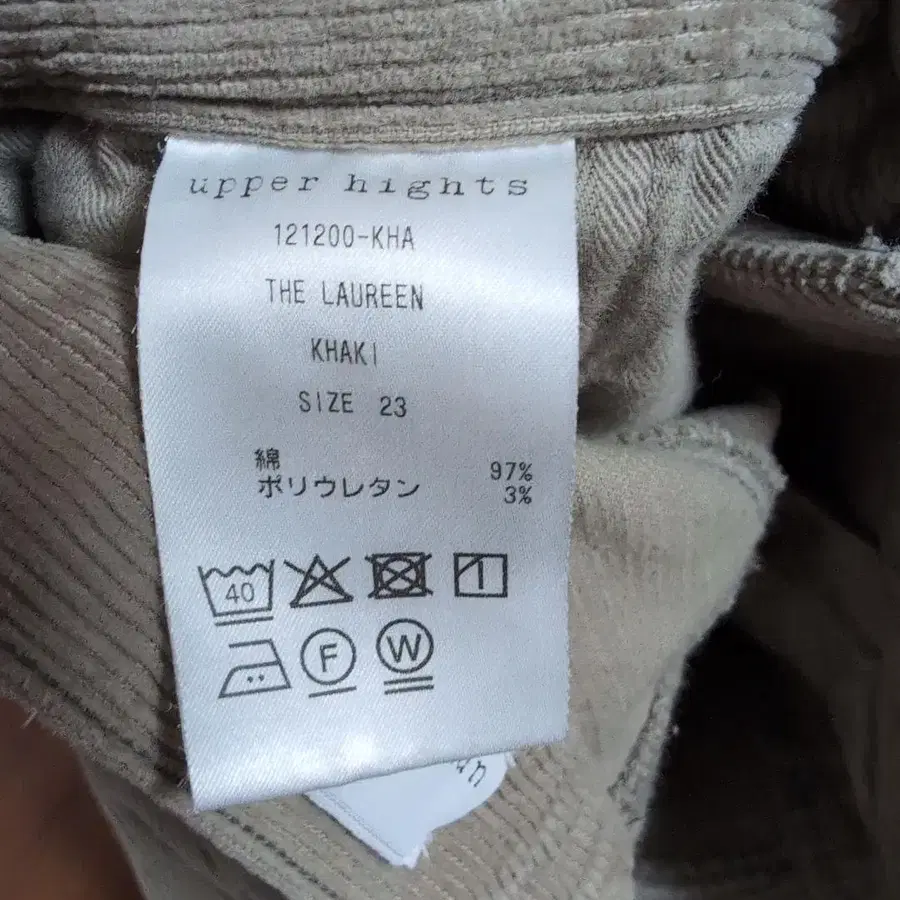 upper hights
121200-KHA
THE LAUREEN
KHAKI
SIZE 23
綿 97%
ポリウレタン 3%
40
F W